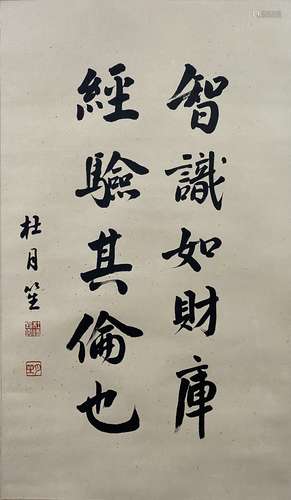 智識如財庫
經驗其倫也
杜月笙